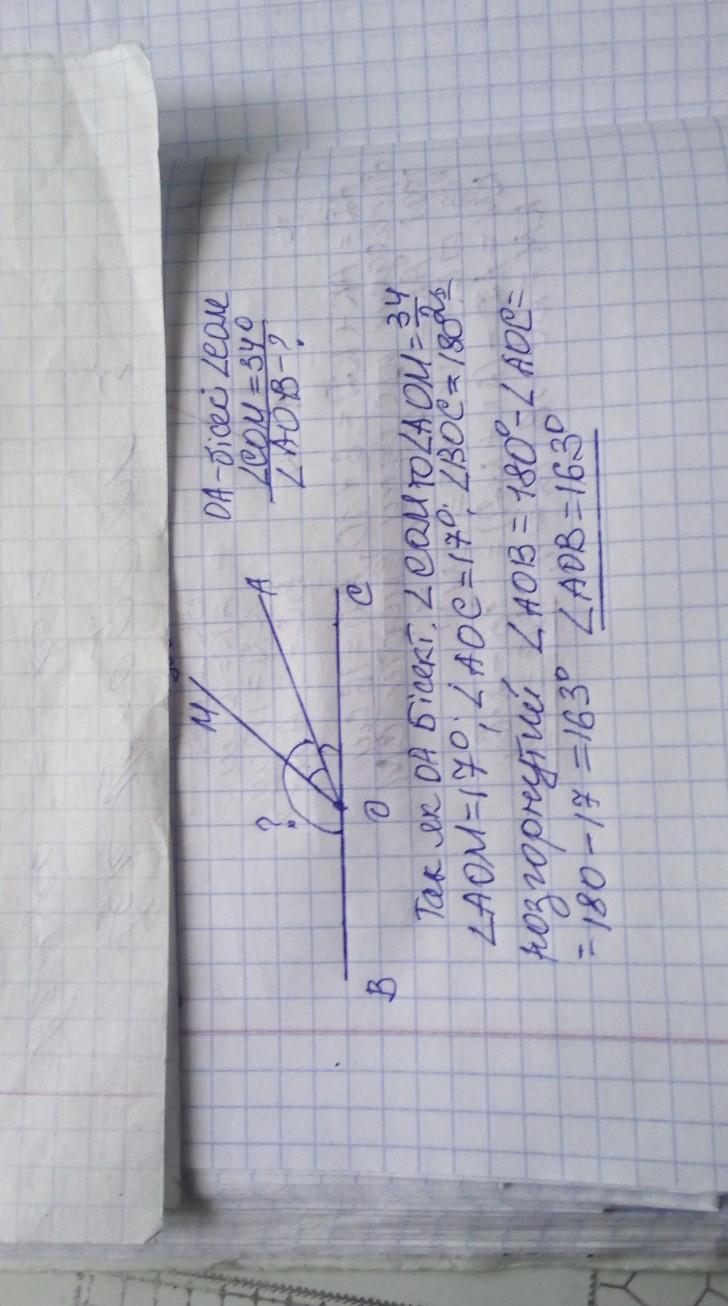 OA-бісес ∠COM
∠COM=34°
∠AOB-?
?
M
A
B
O
C
Так як OA бісект. ∠COM то ∠AOM=34/2
∠AOM=17°; ∠AOC=17°; ∠BOC=180°
розгорнутий ∠AOB=180°-∠AOC=
=180-17=163° ∠AOB=163°